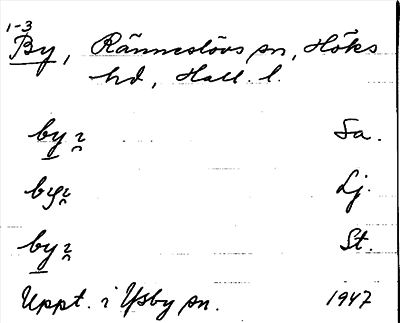 1-3
By, Ränneslövs sn, Höks
hd, Hall. l.
by Sa.
by Lj.
by St.
Uppt. i Ysby sn. 1947